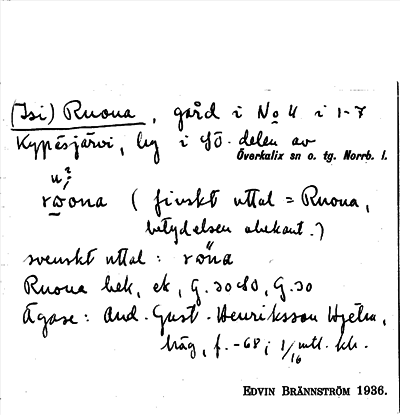 (Isi) Ruona, gård i No 4 i 1-7
Kypäsjärvi, by i sö. delen av
Överkalix sn o. tg. Norrb. l.
u?
roona (finskt uttal = Ruona,
betydelsen obekant.)
svenskt uttal: röna
Ruona hek, ek, G. 3080, G. 30
Ägare: And. Gust. Henriksson Hjelm,
häg, f. -68; 1/16 mtl. kr.
EDVIN BRÄNNSTRÖM 1936.